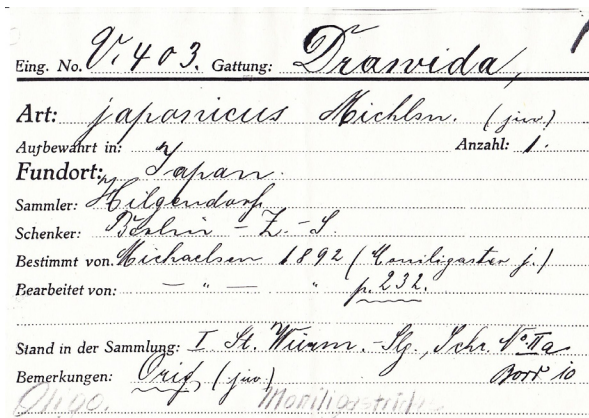 Eing. No. V. 403. Gattung: Drawida,
Art: japonicus Michlsn. (juv.)
Aufbewahrt in: Anzahl: 1.
Fundort: Japan.
Sammler: Hilgendorf
Schenker: Berlin - Z. - S.
Bestimmt von: Michaelsen 1892 (Moniligaster j.)
Bearbeitet von: — " — " p. 232.
Stand in der Sammlung: I St. Würm. - Slg., Schr. No. IIa
Bemerkungen: Orig. (juv.) Bord 10
Oligo. Moniligastridae